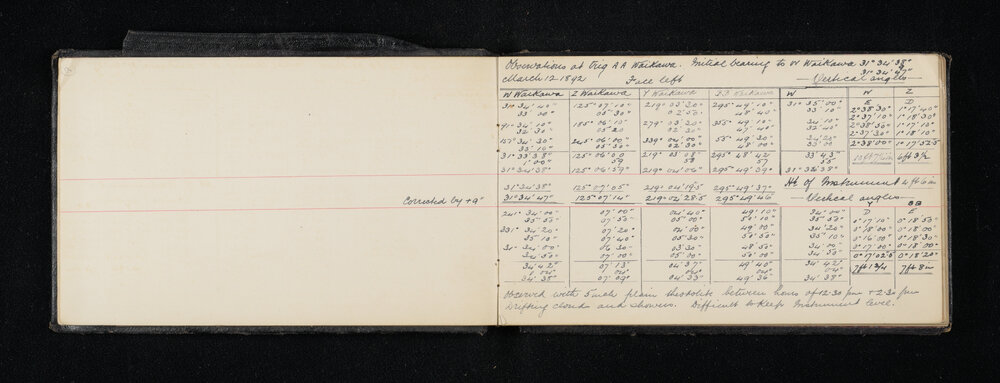 Observations at Trig AA Waikawa. Initial bearing to W Waikawa 31° 34' 38"
31° 34' 47"
March 12 1892 Face left Vertical angles
W Waikawa Z Waikawa Y Waikawa BB Waikawa W W Z
E D
31° 34' 40" 125° 07' 10" 219° 03' 20" 295° 49' 10" 31° 35' 00" 2° 38' 30" 1° 17' 40"
33 00 05' 30" 02' 50" 48' 40" 33' 10" 2° 37' 10" 1° 18' 30"
91° 34' 10" 185° 06' 10" 279° 03' 20" 355° 49' 10" 34' 10" 2° 38' 50" 1° 17' 10"
32' 30" 05' 20 02' 20" 47' 40" 32' 40" 2° 37' 30" 1° 18' 10"
151° 34' 30" 245° 06' 00" 339° 04' 00" 55° 49' 30" 34' 20" 2° 38' 00" 1° 17' 52.5
33' 10" 05' 30" 02' 30" 48' 00" 33' 00
31° 33' 38" 125° 06' 00 219° 03' 08" 295° 48' 42" 33' 43" 4ft 3½
1' 00" 59 58 57 55
31° 34' 38" 125° 06' 59" 219° 04' 06" 295° 49' 39" 31° 34' 38"
31° 34' 38" 125° 07' 05" 219° 04' 19.5 295° 49' 37" Ht of Instrument 4ft 6in
Corrected by +9" 31° 34' 47" 125° 07' 14" 219° 04' 28.5 295° 49' 46" Vertical angles
Y BB
241° 34' 00" 07' 10" 04' 40" 49' 10" 34' 00" D E
35' 50" 07' 50" 05' 00" 50' 10" 35' 50" 0° 17' 10" 0° 18' 50"
331° 34' 20" 07' 20" 04' 00" 49' 00" 34' 20" 0° 18' 00" 0° 18' 00"
35' 10" 07' 40" 05' 30" 50' 50" 35' 10" 0° 16' 00" 0° 18' 30"
31° 34' 00" 06' 30" 03' 30" 48' 50" 34' 00" 0° 17' 00" 0° 18' 00"
34' 50" 07' 00" 05' 00" 50' 00" 34' 50" 0° 17' 02.5 0° 18' 20"
34' 42" 07' 13" 04' 37" 49' 40" 34' 42" 7ft 8in
04" 04" 04" 04" 04"
34' 38" 07' 09" 04' 33" 49' 36" 34' 38"
Observed with 5 inch plain theodolite between hours of 12.30 pm + 2.30 pm
Drifting cloud and showers. Difficult to keep Instrument level.